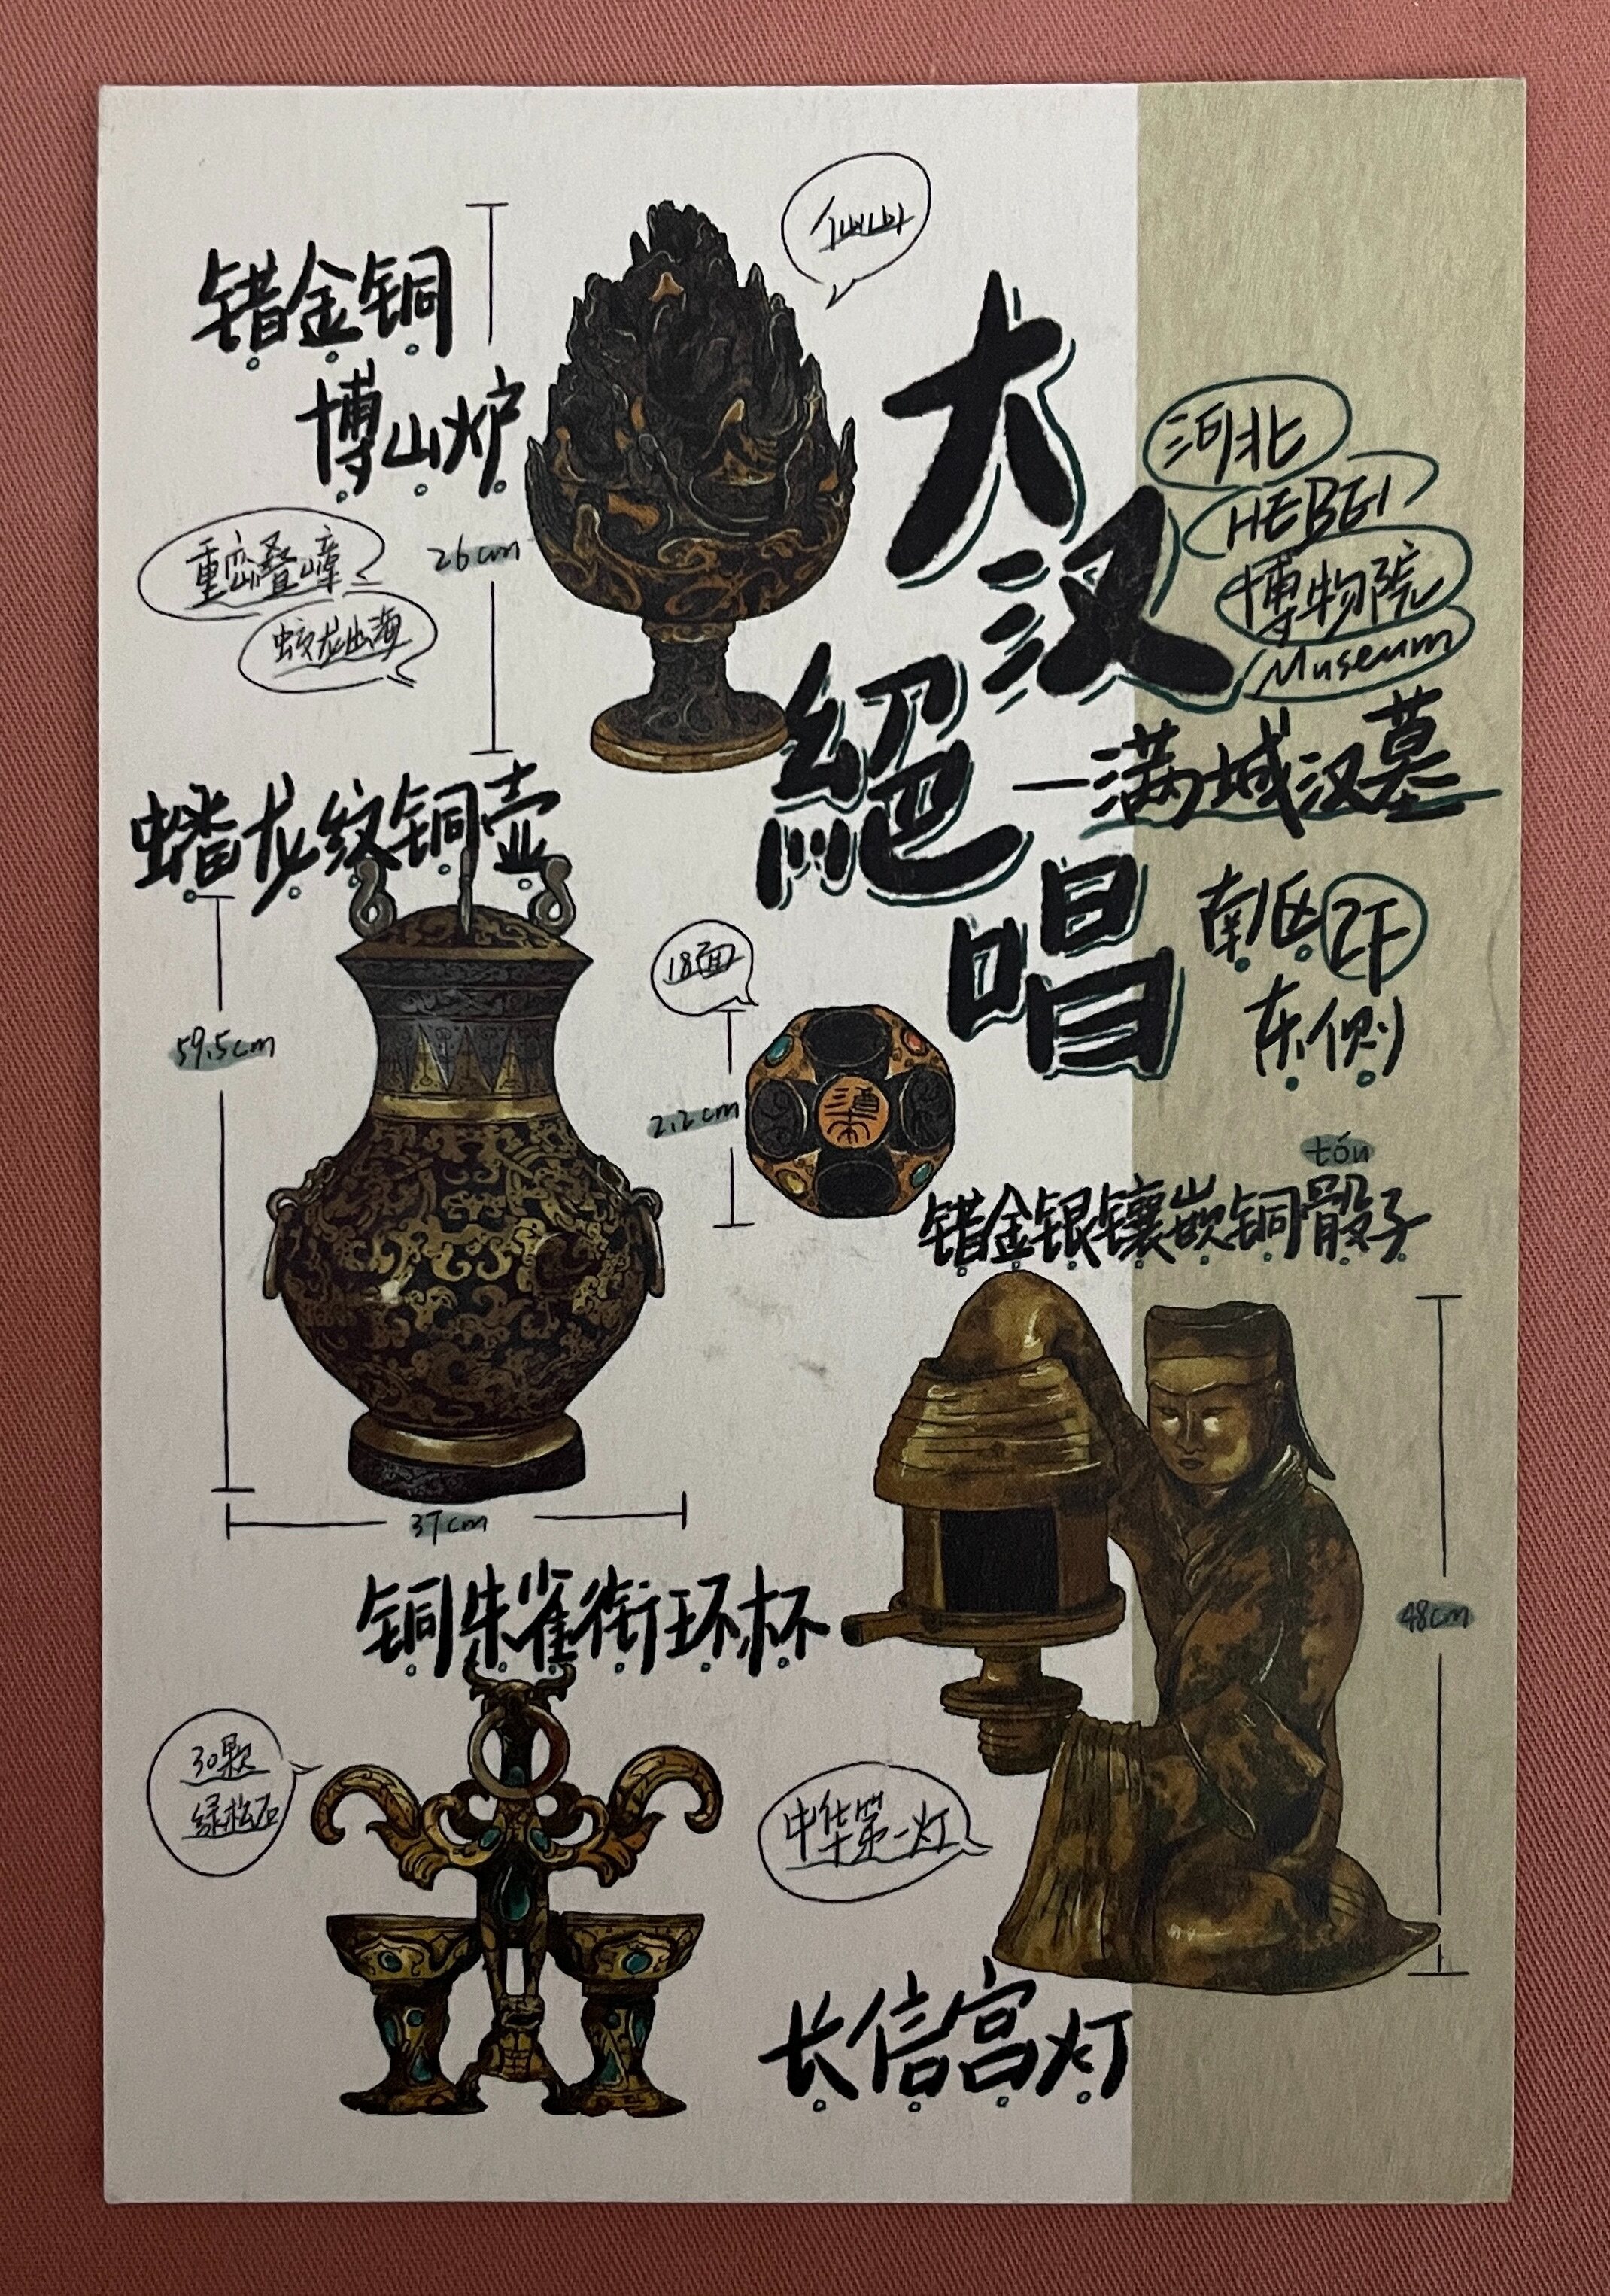 仙山
错金铜
博山炉
26cm
重峦叠嶂
蛟龙出海
大汉
絕唱
河北
HEBEI
博物院
Museum
—满城汉墓
南区2F
东侧
蟠龙纹铜壶
59.5cm
37cm
18面
2.2cm
tóu
错金银镶嵌铜骰子
铜朱雀衔环杯
30颗
绿松石
48cm
中华第一灯
长信宫灯